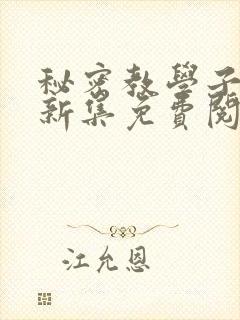 秘密教學子
新集免費閱
江允恩